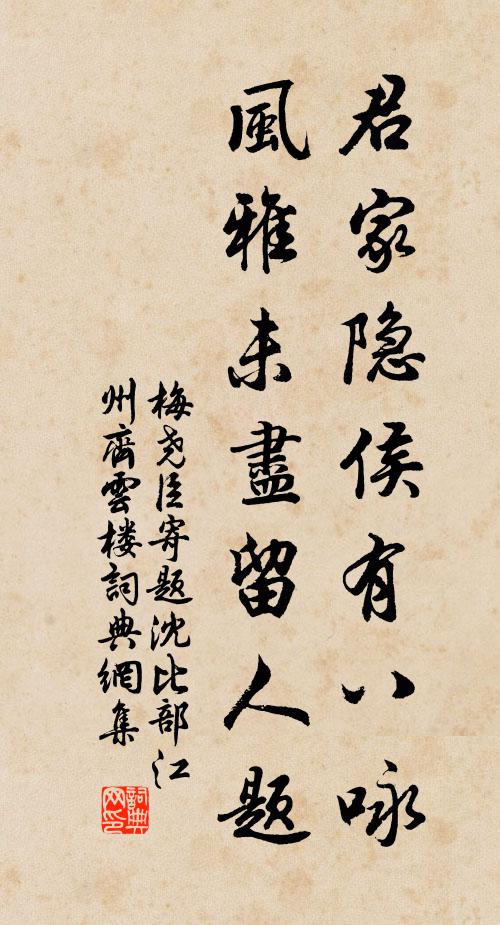 君家隐侯有八咏
風雅未盡留人题
梅尧臣寄题沈比部江
州齊雲楼詞典網集
詞典网印